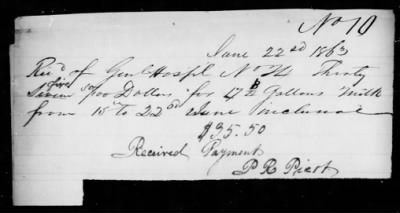 No 10
June 22nd 1863
Recd of Genl Hospl No 24 Thirty
five 50/100 Dollars for 17 3/4 Gallons Milk
from 15th to 22nd June inclusive
$35.50
Received Payment
P R Picot